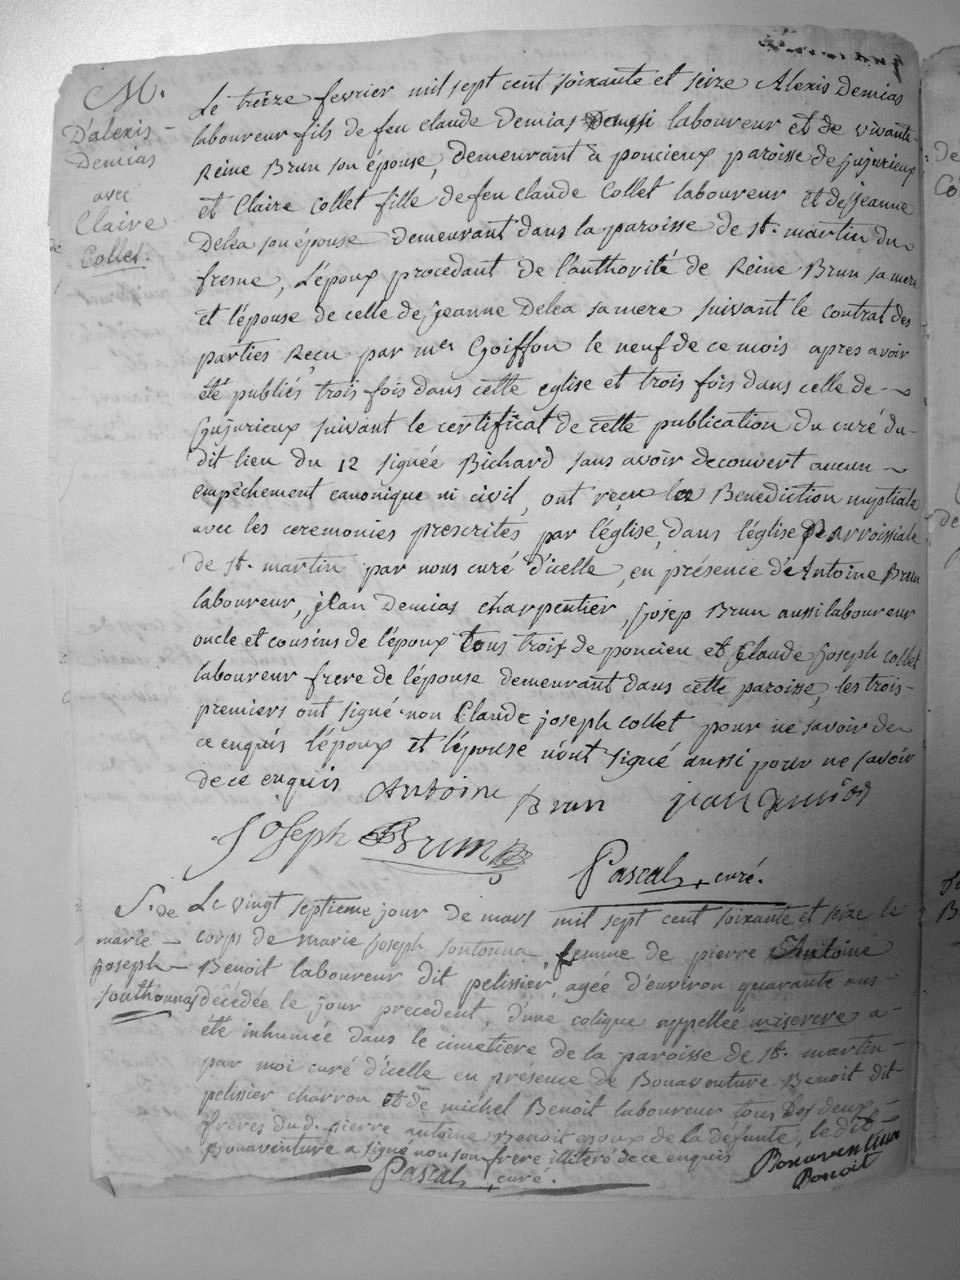 M.
D'alexis
Demias
avec
Claire
Collet.
Le treize fevrier mil sept cent soixante et seize Alexis Demias
laboureur fils de feu claude Demias aussi laboureur et de vivante
Reine Brun son épouse, demeurant à poncieux paroisse de jujurieux
et Claire Collet fille de feu claude Collet laboureur et de jeanne
Delea son épouse demeurant dans la paroisse de st. martin du
fresne, l'époux procedant de l'authorité de Reine Brun sa mere
et l'épouse de celle de jeanne Delea sa mere suivant le contrat des
parties Reçu par me Goiffon le neuf de ce mois apres avoir
été publiés trois fois dans cette eglise et trois fois dans celle de
jujurieux suivant le certificat de cette publication du curé du
dit lieu du 12 signée Bichard sans avoir decouvert aucun
empêchement canonique ni civil, ont reçu la Benediction nuptiale
avec les ceremonies prescrites par l'église, dans l'église parroissiale
de st. martin par nous curé d'icelle, en présence d'Antoine Brun
laboureur, jean Demias charpentier, josep Brun aussi laboureur
oncle et cousins de l'époux tous trois de poncieu et Claude joseph collet
laboureur frere de l'épouse demeurant dans cette paroisse, les trois
premiers ont signé non Claude joseph collet pour ne savoir de
ce enquis l'époux et l'épouse n'ont signé aussi pour ne savoir
de ce enquis Antoine Brun jean
joseph Brun
Pascal, curé.
S. de
marie
joseph
southonnas
Le vingt septieme jour de mars mil sept cent soixante et seize le
corps de marie joseph sontonna, femme de pierre Antoine
Benoit laboureur dit pelissier, agée d'environ quarante ans
décédée le jour precedent, d'une colique appellée miserere a
été inhumée dans le cimetiere de la paroisse de st. martin
par moi curé d'icelle en présence de Bonaventure Benoit dit
pelissier charron et de michel Benoit laboureur tous les deux
freres du d. pierre antoine Benoit epoux de la défunte, le dit
Bonaventure a signé non son frere illiteré de ce enquis
Bonaventure
Benoit
Pascal, curé.